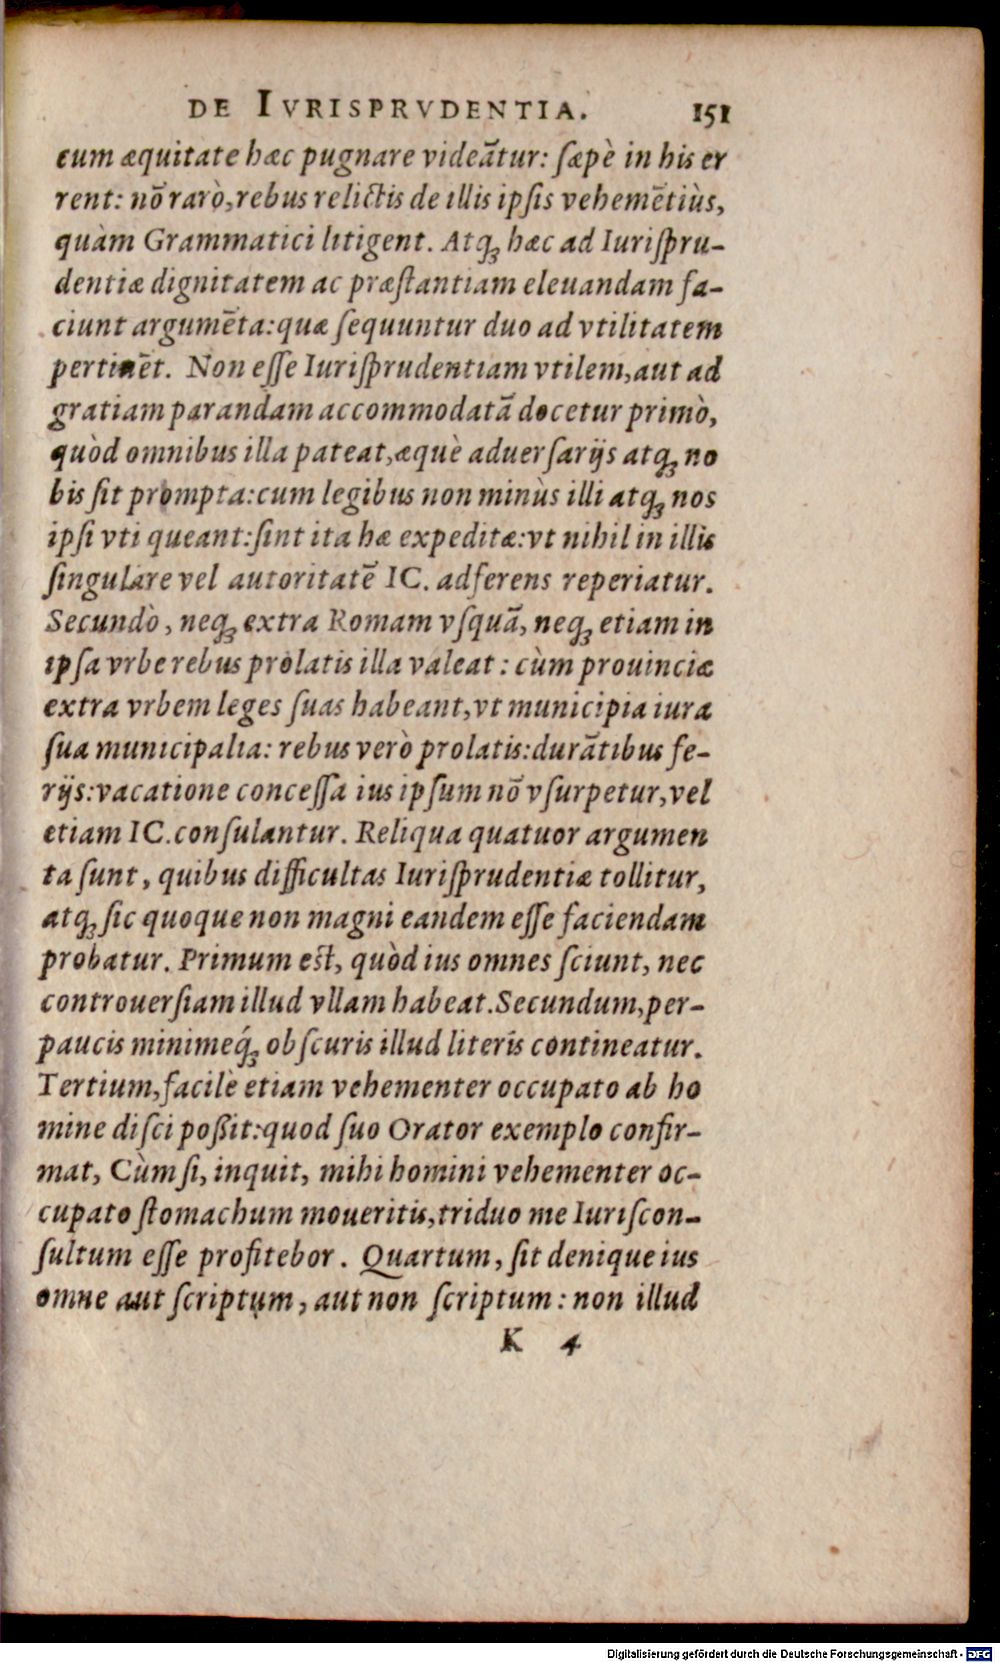 DE IVRISPRVDENTIA. 151
cum æquitate hæc pugnare videātur: ſæpè in his er
rent: nō rarò, rebus relictis de illis ipſis vehemētiùs,
quàm Grammatici litigent. Atq; hæc ad Iuriſpru-
dentiæ dignitatem ac præſtantiam eleuandam fa-
ciunt argumēta: quæ ſequuntur duo ad vtilitatem
pertinēt. Non eſſe Iuriſprudentiam vtilem, aut ad
gratiam parandam accommodatā docetur primò,
quòd omnibus illa pateat, æquè aduerſarijs atq; no
bis ſit prompta: cum legibus non minùs illi atq; nos
ipſi vti queant: ſint ita hæ expeditæ: vt nihil in illis
ſingulare vel autoritatē IC. adferens reperiatur.
Secundò, neq; extra Romam vſquā, neq; etiam in
ipſa vrbe rebus prolatis illa valeat: cùm prouinciæ
extra vrbem leges ſuas habeant, vt municipia iura
ſua municipalia: rebus verò prolatis: durātibus fe-
rijs: vacatione conceſſa ius ipſum nō vſurpetur, vel
etiam IC. conſulantur. Reliqua quatuor argumen
ta ſunt, quibus difficultas Iuriſprudentiæ tollitur,
atq; ſic quoque non magni eandem eſſe faciendam
probatur. Primum eſt, quòd ius omnes ſciunt, nec
controuerſiam illud vllam habeat. Secundum, per-
paucis minimeq́; obſcuris illud literis contineatur.
Tertium, facilè etiam vehementer occupato ab ho
mine diſci poßit: quod ſuo Orator exemplo confir-
mat, Cùm ſi, inquit, mihi homini vehementer oc-
cupato ſtomachum moueritis, triduo me Iuriſcon-
ſultum eſſe profitebor. Quartum, ſit denique ius
omne aut ſcriptum, aut non ſcriptum: non illud
K 4
Digitalisierung gefördert durch die Deutsche Forschungsgemeinschaft - DFG